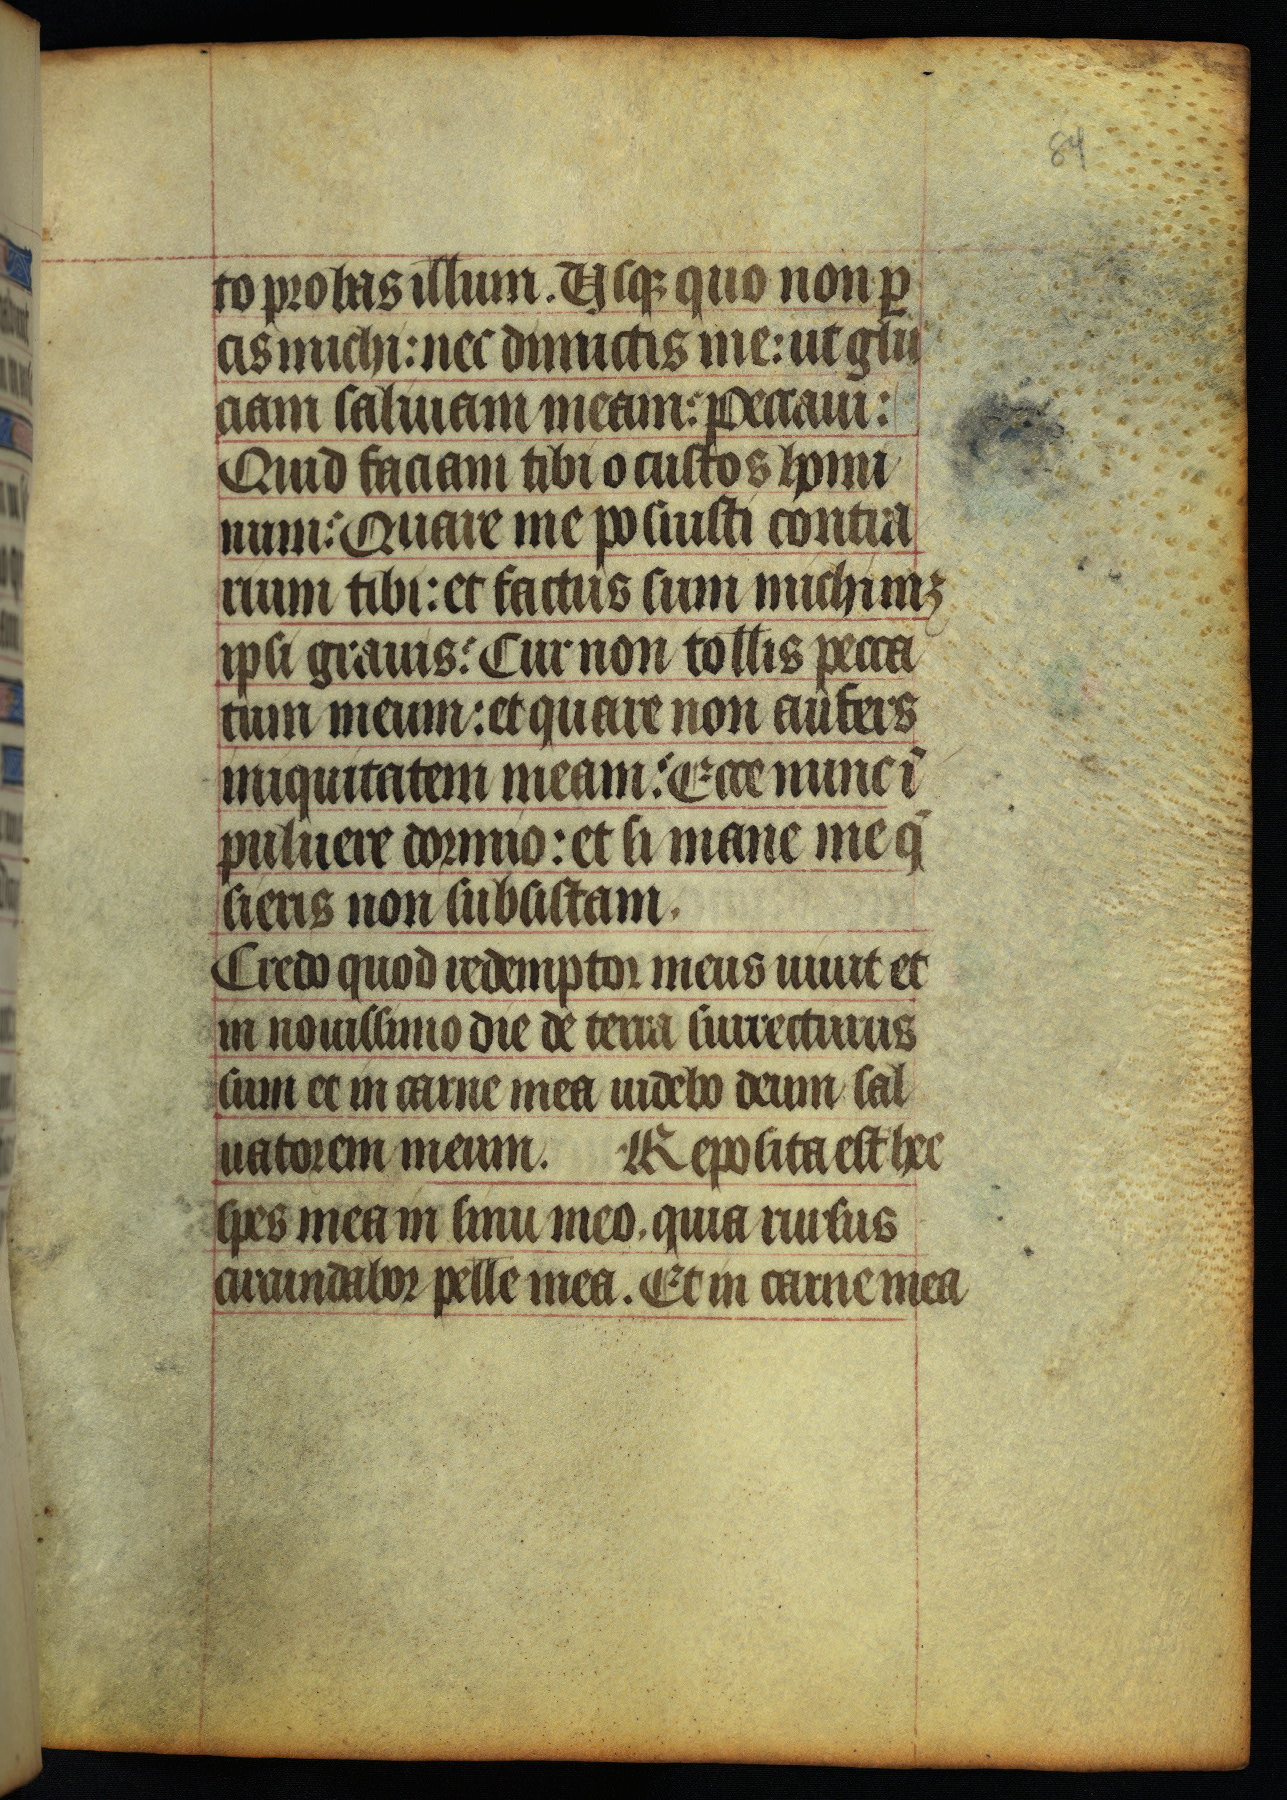 84
to probas illum. Usq; quo non ꝑ
cis michi: nec dimictis me: ut glu
ciam saliuam meam: Peccaui:
Quid faciam tibi o custos homi
num: Quare me posuisti contra
rium tibi: et factus sum michimꝫ
ipsi grauis: Cur non tollis pecca
tum meum: et quare non aufers
iniquitatem meam: Ecce nunc ĩ
puluere dormio: et si mane me q̃
sieris non subsistam.
Credo quod redemptor meus uiuit et
in nouissimo die de terra surrecturus
sum et in carne mea uidebo deum sal
uatorem meum. Reposita est hec
spes mea in sinu meo. quia rursus
circumdabor pelle mea. Et in carne mea